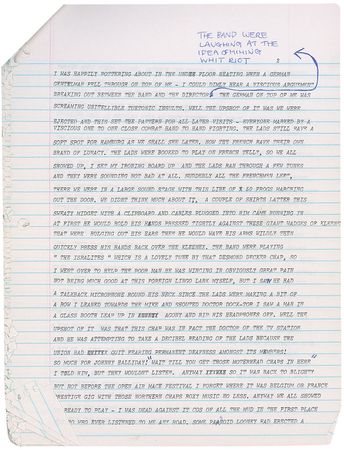 THE BAND WERE
LAUGHING AT THE
IDEA OF MIMING
WHIT RIOT
2
I WAS HAPPILY POTTERING ABOUT IN THE UNDER FLOOR HEATING WHEN A GERMAN
GENTELMAN FELL THROUGH ON TOP OF ME - I COULD DIMLY HEAR A VISCIOUS ARGUEMENT
BREAKING OUT BETWEEN THE BAND AND THE DIRECTOR, THE GERMAN ON TOP OF ME WAS
SCREAMING UNITELLIBLE TUETONIC INSULTS. WELL THE UPSHOT OF IT WAS WE WERE
EJECTED AND THIS SET THE PATTERN FOR ALL LATER VISITS - EVERYONE MARKED BY A
VISCIOUS ONE TO ONE CLOSE COMBAT HAND TO HAND FIGHTING. THE LADS STILL HAVE A
SOFT SPOT FOR HAMBURG AS WE SHALL SEE LATER. NOW THE FRENCH HAVE THEIR OWN
BRAND OF LUNACY. THE LADS WERE BOOKED TO PLAY ON FRENCH TELLY, SO WE ALL
SHOWED UP, I SET MY IRONING BOARD UP AND THE LADS RAN THROUGH A FEW TUNES
AND THEY WERE SOUNDING NOT BAD AT ALL. SUDDENLY ALL THE FRENCHMEN LEFT,
THERE WE WERE IN A LARGE SOUND STAGE WITH THIS LINE OF LO FROGS MARCHING
OUT THE DOOR. WE DIDNT THINK MUCH ABOUT IT, A COUPLE OF SHIRTS LATTER THIS
SWEATY MIDGET WITH A CLIPBOARD AND CABLES PLUGGED INTO HIM CAME RUNNING IN
AT FIRST HE WOULD HOLD HIS HANDS PRESSED TIGHTLY AGAINST THESE GIANT WADGES OF KLEENEX
THAT WERE BULGING OUT HIS EARS THEN HE WOULD WAVE HIS ARMS WILDLY THEN
QUICKLY PRESS HIS HANDS BACK OVER THE KLEENEX. THE BAND WERE PLAYING
" THE ISRALITES " WHICH IS A LOVELY TUNE BY THAT DESMOND DECKER CHAP, SO
I WENT OVER TO HELP THE POOR MAN HE WAS WINCING IN OBVIOUSLY GREAT PAIN
NOT BEING MUCH GOOD AT THIS FOREIGN LINGO LARK MYSELF, BUT I SAW HE HAD
A TALKBACK MICROPHONE ROUND HIS NECK SINCE THE LADS WERE MAKING A BIT OF
A ROW I LEANED TOWARDS THE MIKE AND SHOUTED DOCTOR DOCTOR I SAW A MAN IN
A GLASS BOOTH LEAP UP IN AGONY AND RIP HIS HEADPHONES OFF. WELL THE
UPSHOT OF IT WAS THAT THIS CHAP WAS IN FACT THE DOCTOR OF THE TV STATION
AND HE WAS ATTEMPTING TO TAKE A DECIBAL READING OF THE LADS BECAUSE THE
UNION HAD QUIT FEARING PERMANENT DEAFNESS AMONGST ITS MEMBERS!
SO MUCH FOR JOHNNY HALLIDAY "WAIT TILL YOU GET THOSE MOTERHEAD CHAPS IN HERE"
I TOLD HIM, BUT THEY WOULDNT LISTEN. ANYWAY SO IT WAS BACK TO BLIGHTY
BUT NOT BEFORE THE OPEN AIR MACE FESTIVAL I FORGET WHERE IT WAS BELGIUM OR FRANCE
PRESTIGE GIG WITH THOSE NORTHERN CHAPS ROXY MUSIC NO LESS. ANYWAY WE ALL SHOWED
READY TO PLAY - I WAS DEAD AGAINST IT COS OF ALL THE MUD IN THE FIRST PLACE
WHO EVER LISTENED TO ME ANY ROAD. SOME PARANOID LOONEY HAD ERECTED A